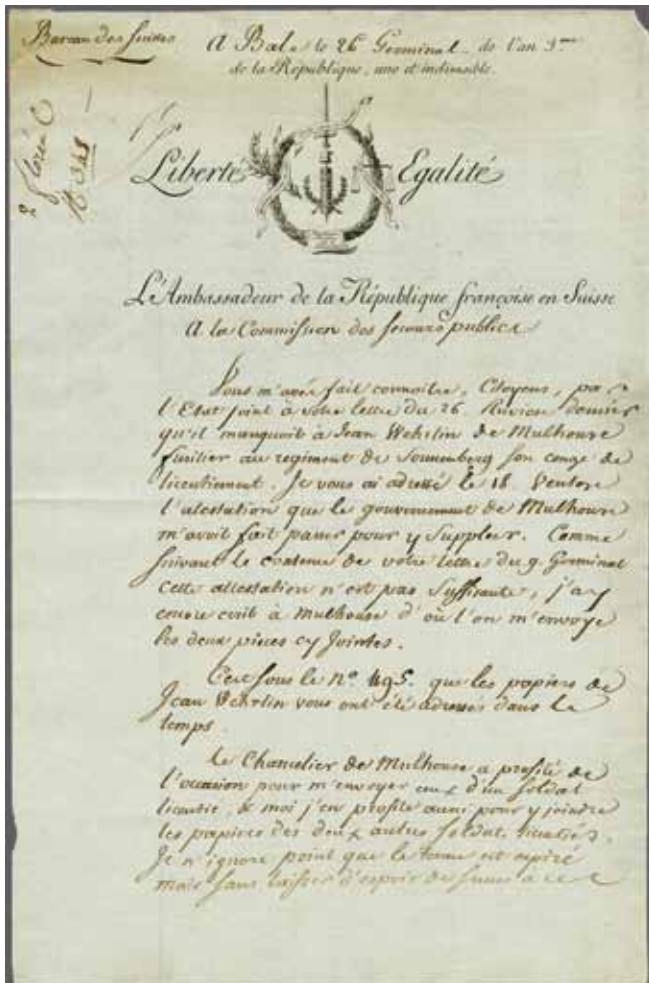 Bureau des Suisses
A Bale le 26 Germinal de l'an 3me
de la République, une et indivisible.
Liberté Egalité
L'Ambassadeur de la République françoise en Suisse
A la Commission des secours publics
Vous m'avés fait connoître, Citoyens, par
l'Etat joint à votre lettre du 26. Nivose dernier
qu'il manquoit à Jean Wehrlin de Mulhouse
fusilier au regiment de Sonnenberg son congé de
licentiment. Je vous ai adressé le 18. Ventose
l'atestation que le gouvernement de Mulhouse
m'avoit fait passer pour y Suppléer. Comme
suivant le contenu de votre lettre du 9. Germinal
cette attestation n'est pas Suffisante, j'ay
encore écrit à Mulhouse d'où l'on m'envoye
les deux pièces cy Jointes.
C'est sous le No. 495. que les papiers de
Jean Wehrlin vous ont été adressés dans le
temps.
Le Chancelier de Mulhouse a profité de
l'occasion pour m'envoyer ceux d'un Soldat
licentié, & moi j'en profite aussi pour y joindre
les papiers des deux autres Soldats licentiés.
Je n'ignore point que le terme est expiré
mais sans laisser d'espoir de succès à ces